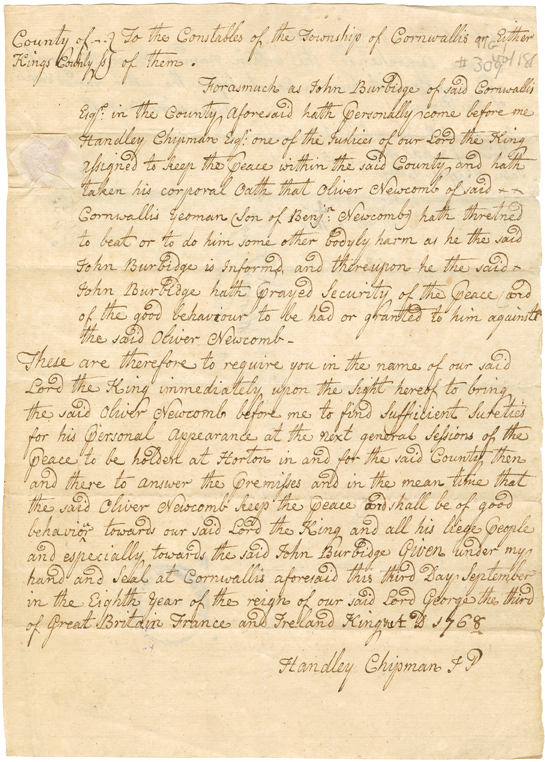 County of } To the Constables of the Township of Cornwallis or Either
Kings County ss } of them.
MG1
#309 181
Forasmuch as John Burbidge of said Cornwallis
Esqr. in the County Aforesaid hath Personally come before me
Handley Chipman Esqr. one of the Justices of our Lord the King
assigned to keep the Peace within the said County and hath
taken his corporal Oath that Oliver Newcomb of said
Cornwallis Yeoman (Son of Benjr. Newcomb) hath thretned
to beat or to do him some other bodyly harm as he the said
John Burbidge is Informd, and thereupon he the said
John Burbidge hath Prayed Security of the Peace and
of the good behaviour to be had or granted to him against
the said Oliver Newcomb -
These are therefore to require you in the name of our said
Lord the King immediately upon the sight hereof to bring
the said Oliver Newcomb before me to find sufficient sureties
for his Personal Appearance at the next general Sessions of the
Peace to be holden at Horton in and for the said County then
and there to answer the Premisses and in the mean time that
the said Oliver Newcomb keep the Peace and shall be of good
behavior towards our said Lord the King and all his liege People
and especially towards the said John Burbidge Given under my
hand and Seal at Cornwallis aforesaid this third Day September
in the Eighth Year of the reign of our said Lord George the third
of Great Britain France and Ireland King &c A D 1768
Handley Chipman J P